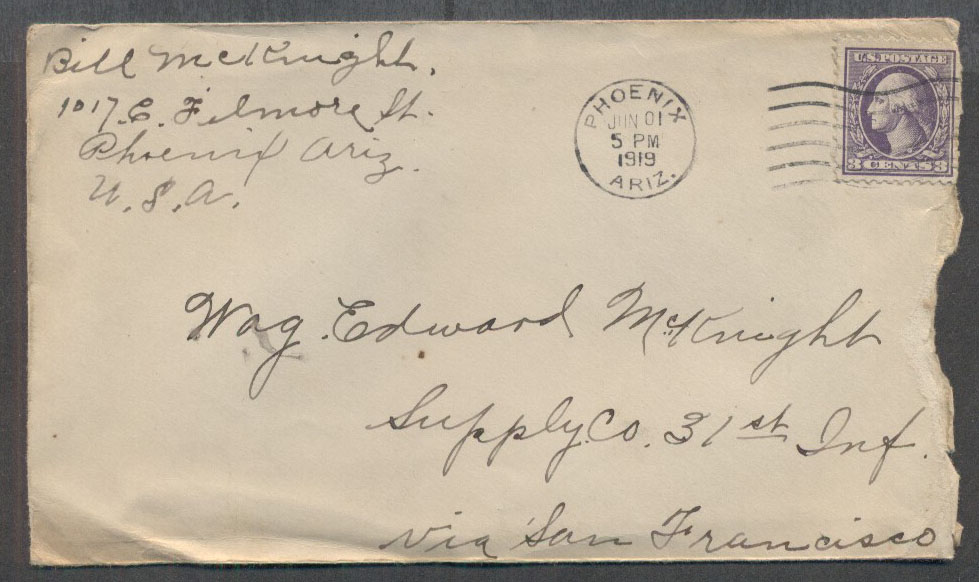 Bill McKnight.
1017.E. Filmore St.
Phoenix Ariz.
U.S.A.
PHOENIX
JUN 01
5 PM
1919
ARIZ.
U.S. POSTAGE
3 CENTS 3
Wag. Edward McKnight
Supply Co. 31st Inf.
via San Francisco